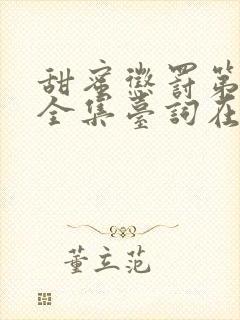 甜蜜懲罰第
全集臺詞在
董立范